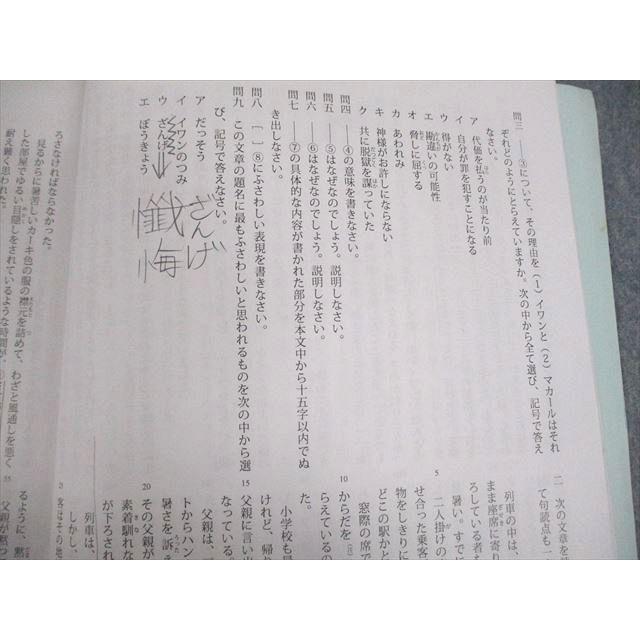 問三 ――③について、その理由を(1)イワンと(2)マカールはそれ
ぞれどのようにとらえていますか。次の中から全て選び、記号で答え
なさい。
ア 代価を払うのが当たり前
イ 自分が罪を犯すことになる
ウ 得がない
エ 勘違いの可能性
オ 脅しに屈する
カ あわれみ
キ 神様がお許しにならない
ク 共に脱獄を謀っていた
問四 ――④の意味を書きなさい。
問五 ――⑤はなぜなのでしょう。説明しなさい。
問六 ――⑥はなぜなのでしょう。説明しなさい。
問七 ――⑦の具体的な内容が書かれた部分を本文中から十五字以内でぬ
き出しなさい。
問八 〔 〕⑧にふさわしい表現を書きなさい。
問九 この文章の題名に最もふさわしいと思われるものを次の中から選
び、記号で答えなさい。
ア だっそう
イ イワンのつみ
ウ ざんげ
エ ぼうきょう
ざんげ
懺悔
二 次の文章を
て句読点も一
列車の中は、
まま座席に寄り
ろしている者も
暑い。すでに
5
二人掛けの
せ合った乗客
物をしきりに
どこの駅かと
窓際の席で
10
からだを
らえているの
た。
小学校も
けれど、帰り
15
父親に言い
なっている。
父親は、
トからハン
暑さを訴え
20
その父親が
素着馴れな
が下ろされ
列車は、
しかし、
客はその地
ろさなければならなかった。
見るからに暑苦しいカーキ色の服の襟元を詰めて、わざと風通しを悪く
した部屋でゆるい目隠しをされているような時間が、
耐え難く思われた。
55
父親が黙っ
るように、黙